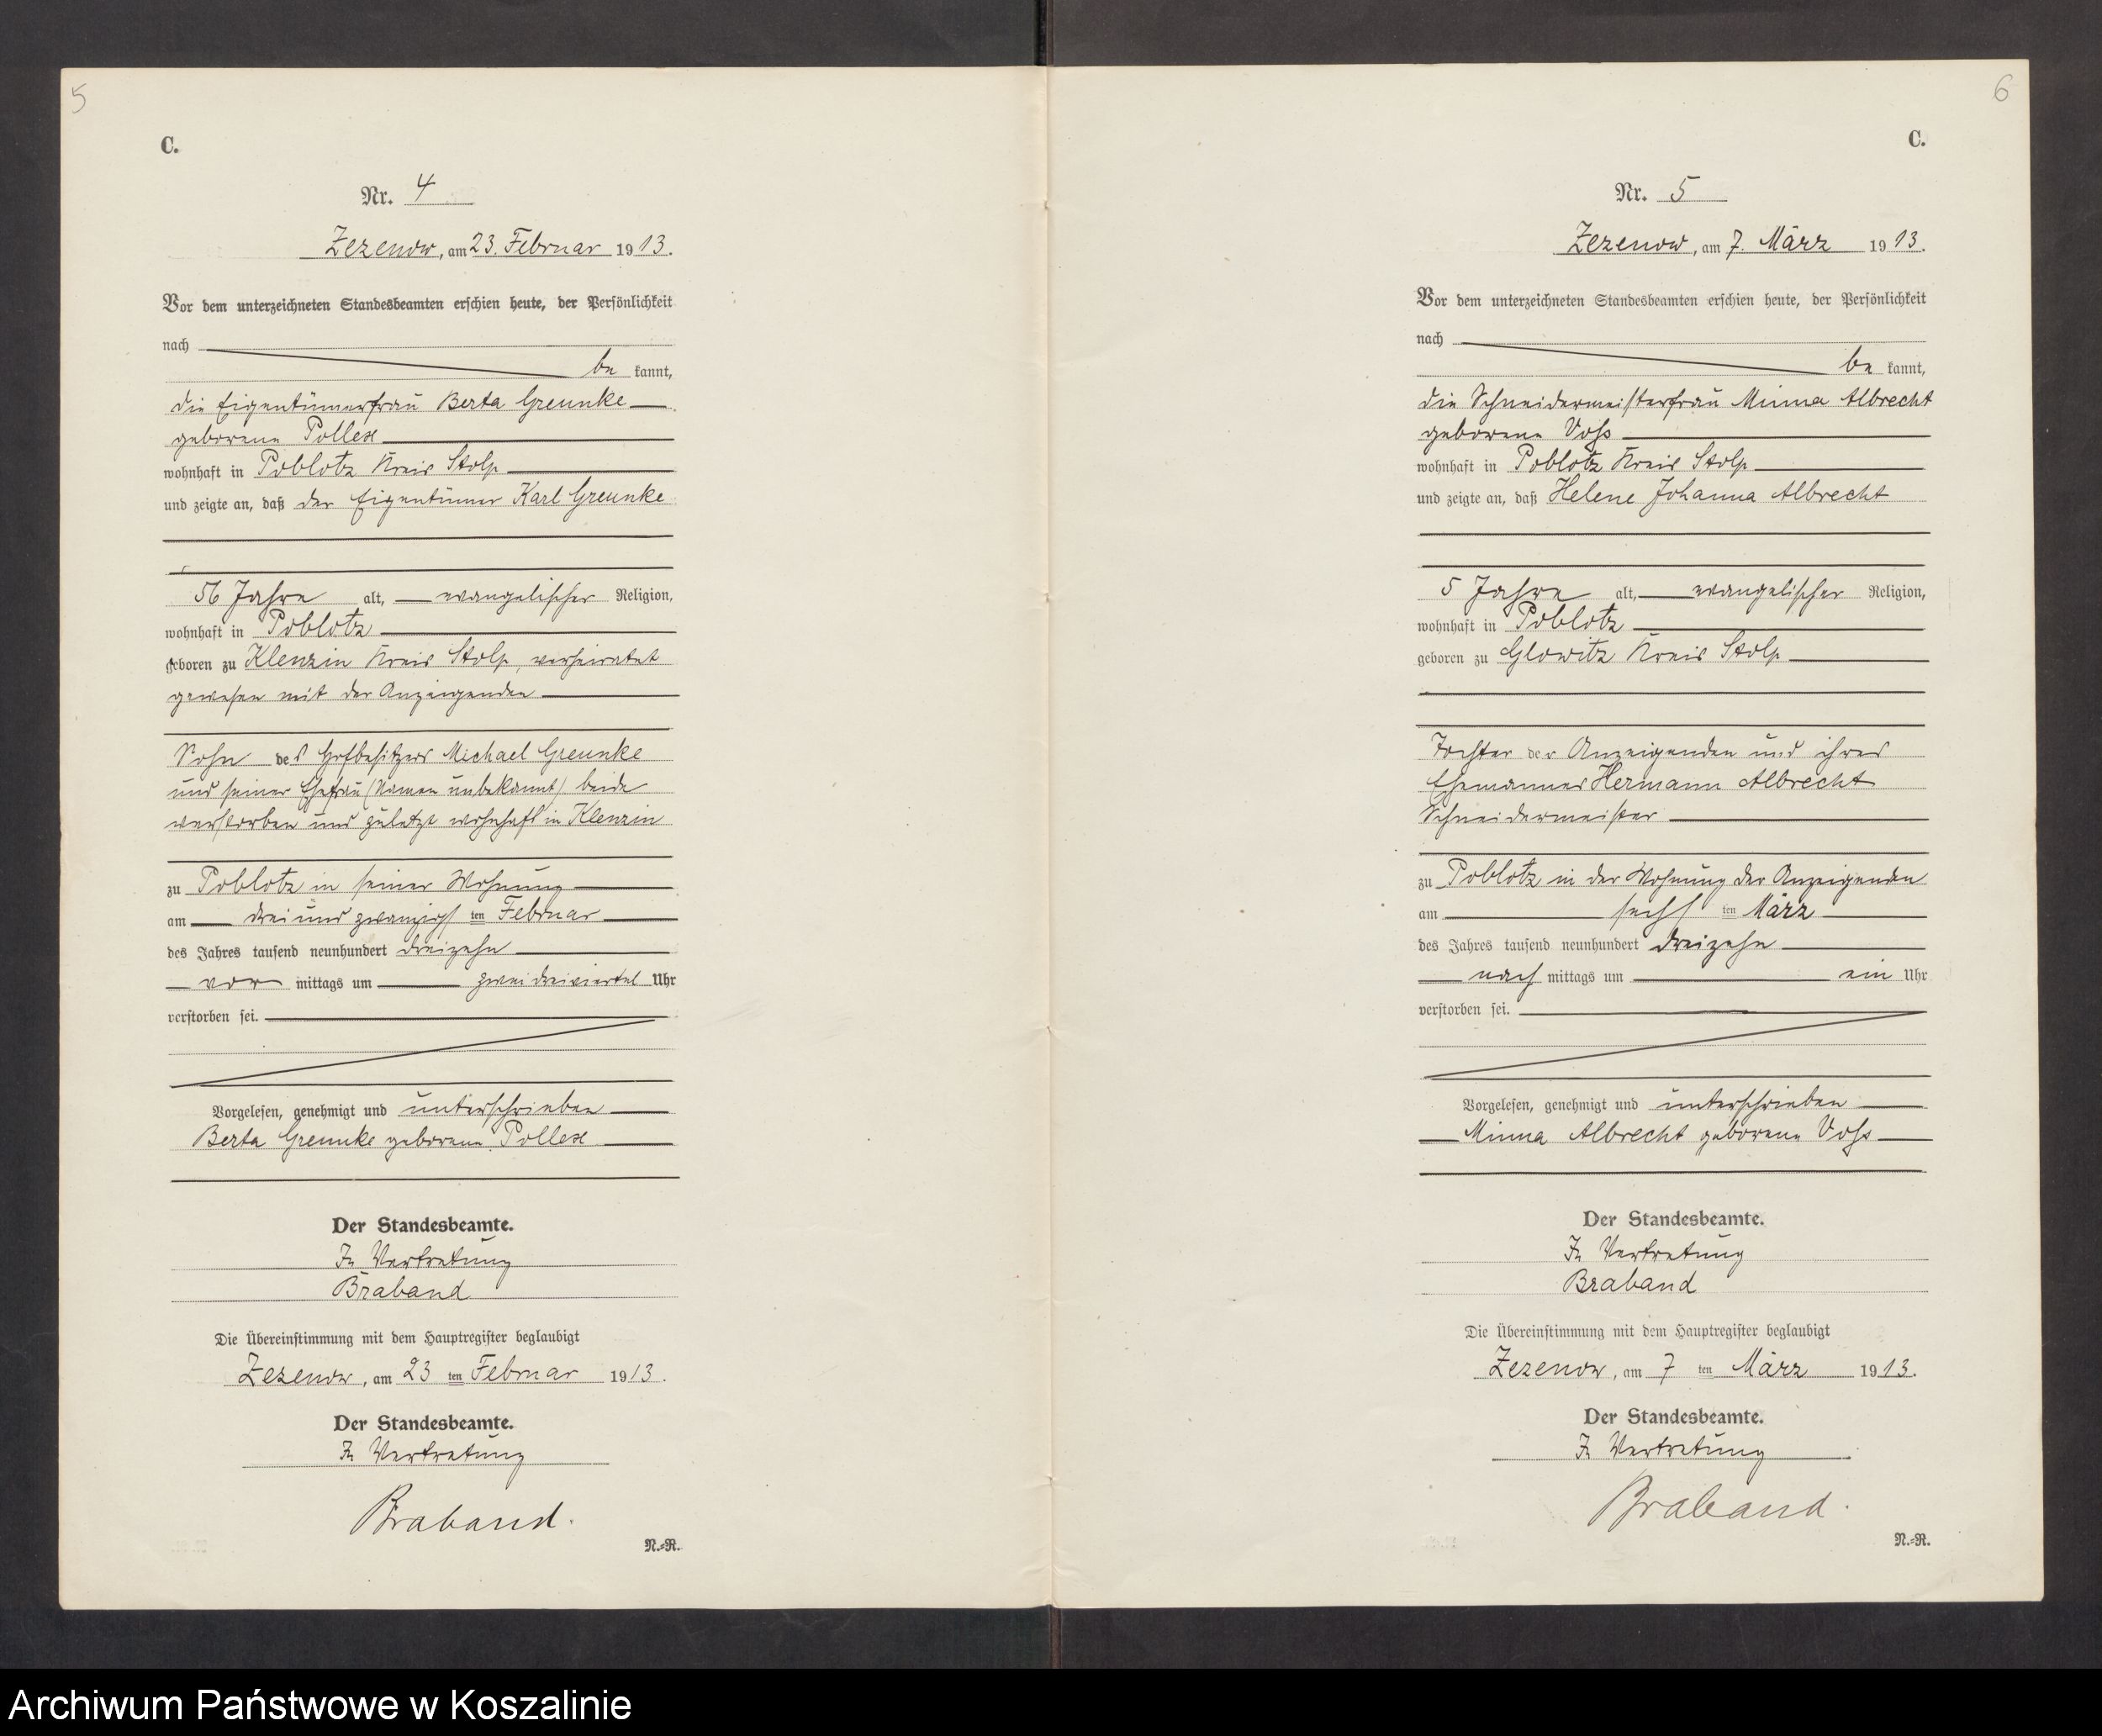 5
C.
Nr. 4
Zezenow, am 23. Februar 1913.
Vor dem unterzeichneten Standesbeamten erschien heute, der Persönlichkeit
nach
be kannt,
die Eigentümerfrau Berta Greunke
geborene Pollex
wohnhaft in Poblotz Kreis Stolp
und zeigte an, daß der Eigentümer Karl Greunke
56 Jahre alt, evangelischer Religion,
wohnhaft in Poblotz
geboren zu Klenzin Kreis Stolp, verheiratet
gewesen mit der Anzeigenden
Sohn des Hofbesitzers Michael Greunke
und seiner Ehefrau (Namen unbekannt) beide
verstorben und zuletzt wohnhaft in Klenzin
zu Poblotz in seiner Wohnung
am drei und zwanzigsten Februar
des Jahres tausend neunhundert dreizehn
vor mittags um zwei dreiviertel Uhr
verstorben sei.
Vorgelesen, genehmigt und unterschrieben
Berta Greunke geborene Pollex
Der Standesbeamte.
In Vertretung
Braband
Die Übereinstimmung mit dem Hauptregister beglaubigt
Zezenow, am 23 ten Februar 1913.
Der Standesbeamte.
In Vertretung
Braband.
N.-R.
6
C.
Nr. 5
Zezenow, am 7. März 1913.
Vor dem unterzeichneten Standesbeamten erschien heute, der Persönlichkeit
nach
be kannt,
die Schneidermeisterfrau Minna Albrecht
geborene Voß
wohnhaft in Poblotz Kreis Stolp
und zeigte an, daß Helene Johanna Albrecht
5 Jahre alt, evangelischer Religion,
wohnhaft in Poblotz
geboren zu Glowitz Kreis Stolp
Tochter der Anzeigenden und ihres
Ehemannes Hermann Albrecht
Schneidermeister
zu Poblotz in der Wohnung der Anzeigenden
am sechsten März
des Jahres tausend neunhundert dreizehn
nach mittags um ein Uhr
verstorben sei.
Vorgelesen, genehmigt und unterschrieben
Minna Albrecht geborene Voß
Der Standesbeamte.
In Vertretung
Braband
Die Übereinstimmung mit dem Hauptregister beglaubigt
Zezenow, am 7 ten März 1913.
Der Standesbeamte.
In Vertretung
Braband.
N.-R.
Archiwum Państwowe w Koszalinie